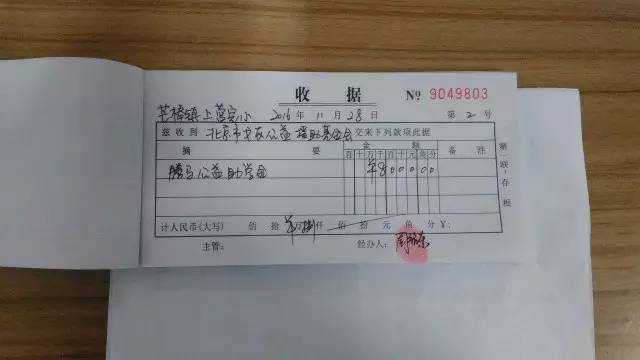 收据 № 9049803
芒棒镇上营完小 2016年11月28日 第2号
兹收到 北京市 公益 基金会 交来下列款项此据
摘要 金额 备注
百十万千百十元角分
腾 公益助学金 ¥800000
计人民币(大写) 佰拾 万捌仟佰拾元角分¥:
主管: 经办人: 周
第一联:存根